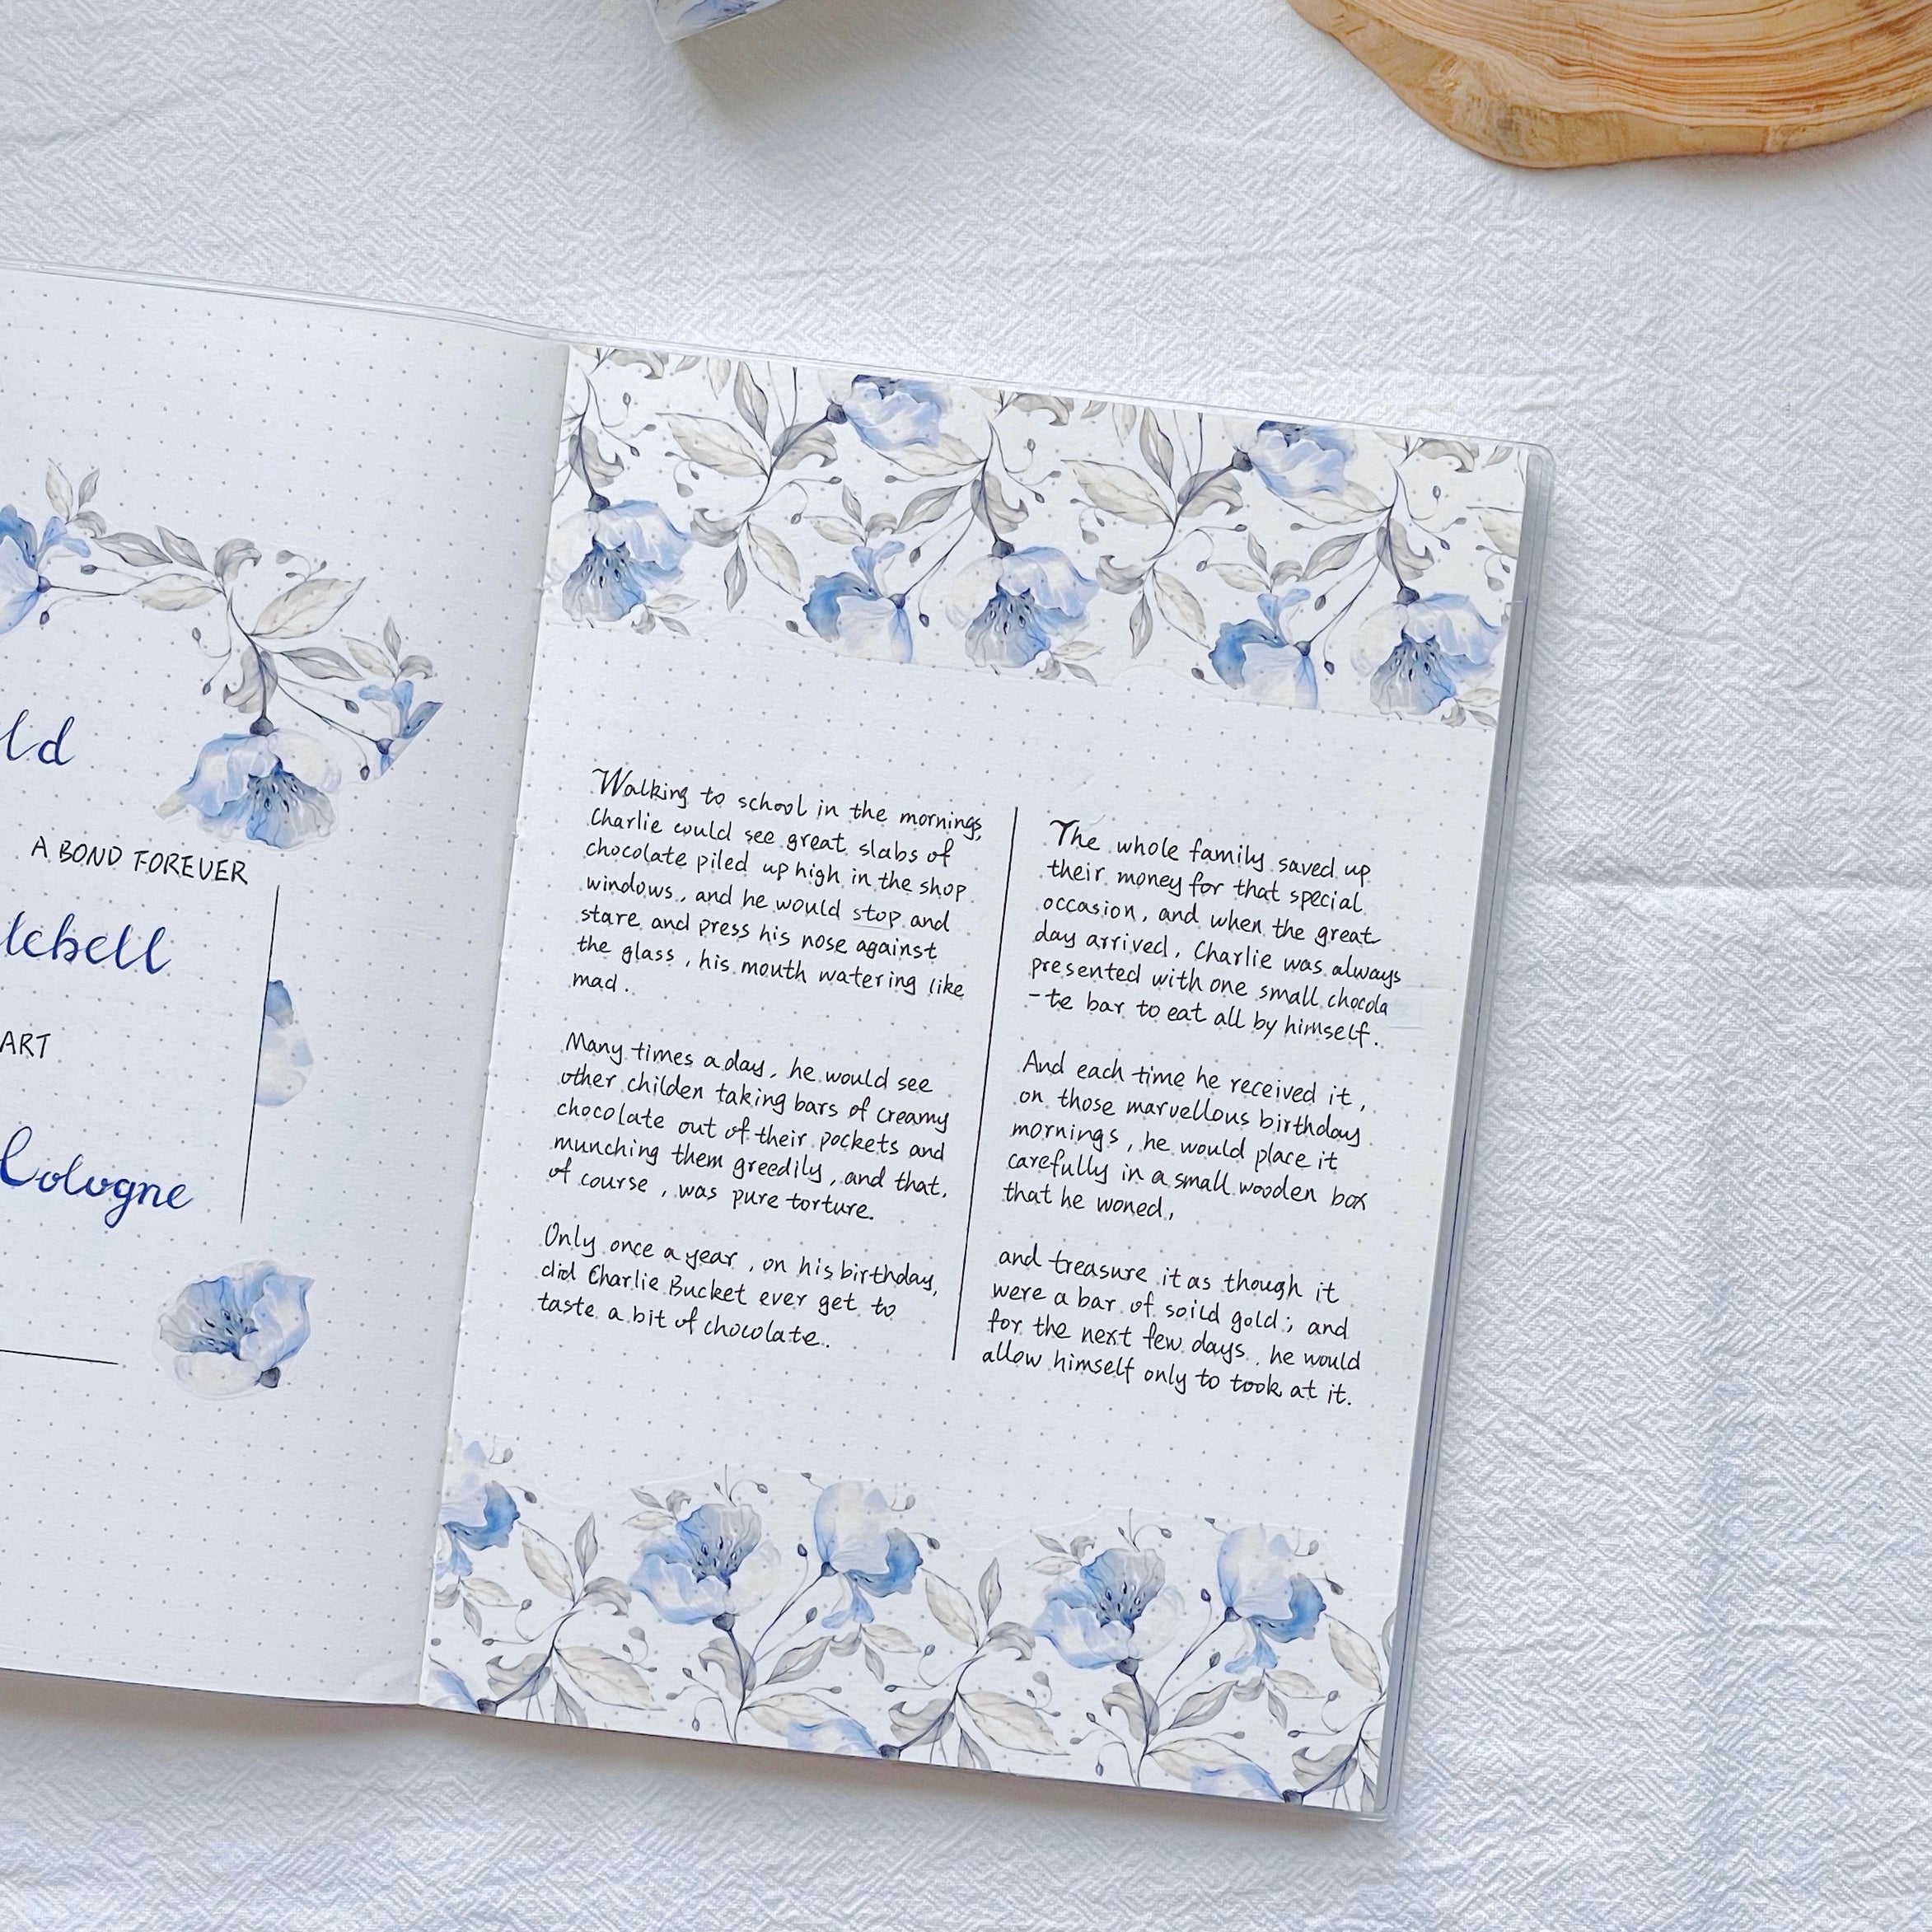 ld
A BOND FOREVER
tchell
ART
Cologne
Walking to school in the mornings,
Charlie could see great slabs of
chocolate piled up high in the shop
windows, and he would stop and
stare and press his nose against
the glass, his mouth watering like
mad.
Many times a day, he would see
other childen taking bars of creamy
chocolate out of their pockets and
munching them greedily, and that,
of course, was pure torture.
Only once a year, on his birthday,
did Charlie Bucket ever get to
taste a bit of chocolate.
The whole family saved up
their money for that special
occasion, and when the great
day arrived, Charlie was always
presented with one small chocola
-te bar to eat all by himself.
And each time he received it,
on those marvellous birthday
mornings, he would place it
carefully in a small wooden box
that he woned,
and treasure it as though it
were a bar of soild gold; and
for the next few days, he would
allow himself only to took at it.